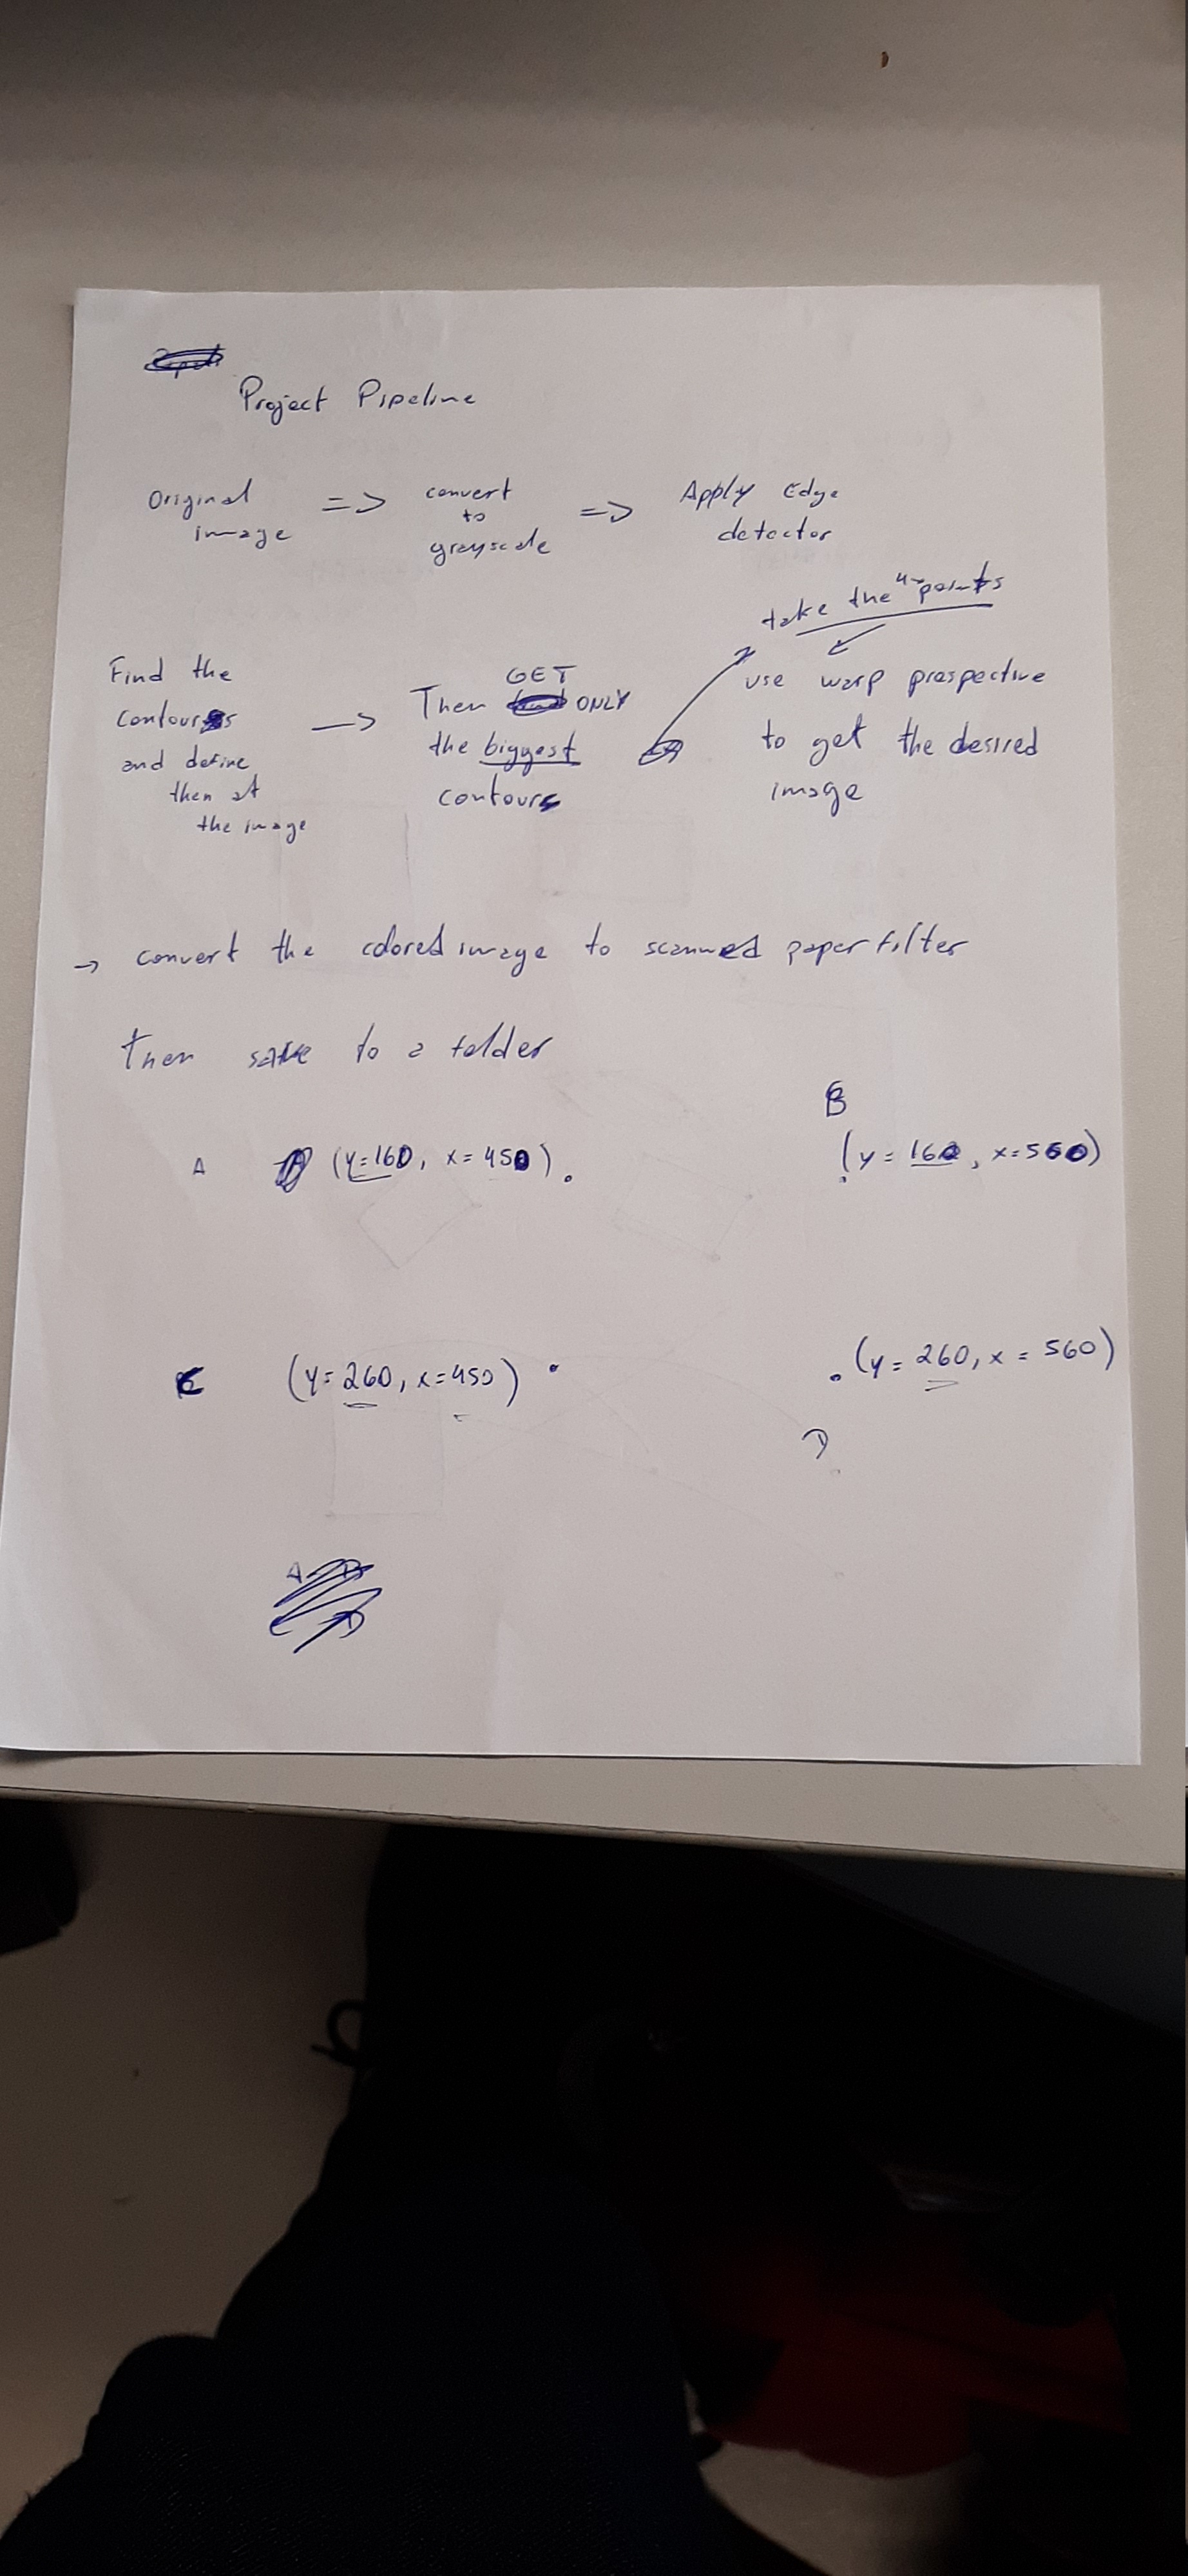 Project Pipeline
Original image => convert to grayscale => Apply Edge detector
take the 4 points
Find the contours and define then at the image -> Then GET ONLY the biggest contours
use warp prospective to get the desired image
-> convert the colored image to scanned paper filter
then save to a folder
B
A (y=160, x=450) . . (y=160, x=560)
C (y=260, x=450) . . (y=260, x=560)
D